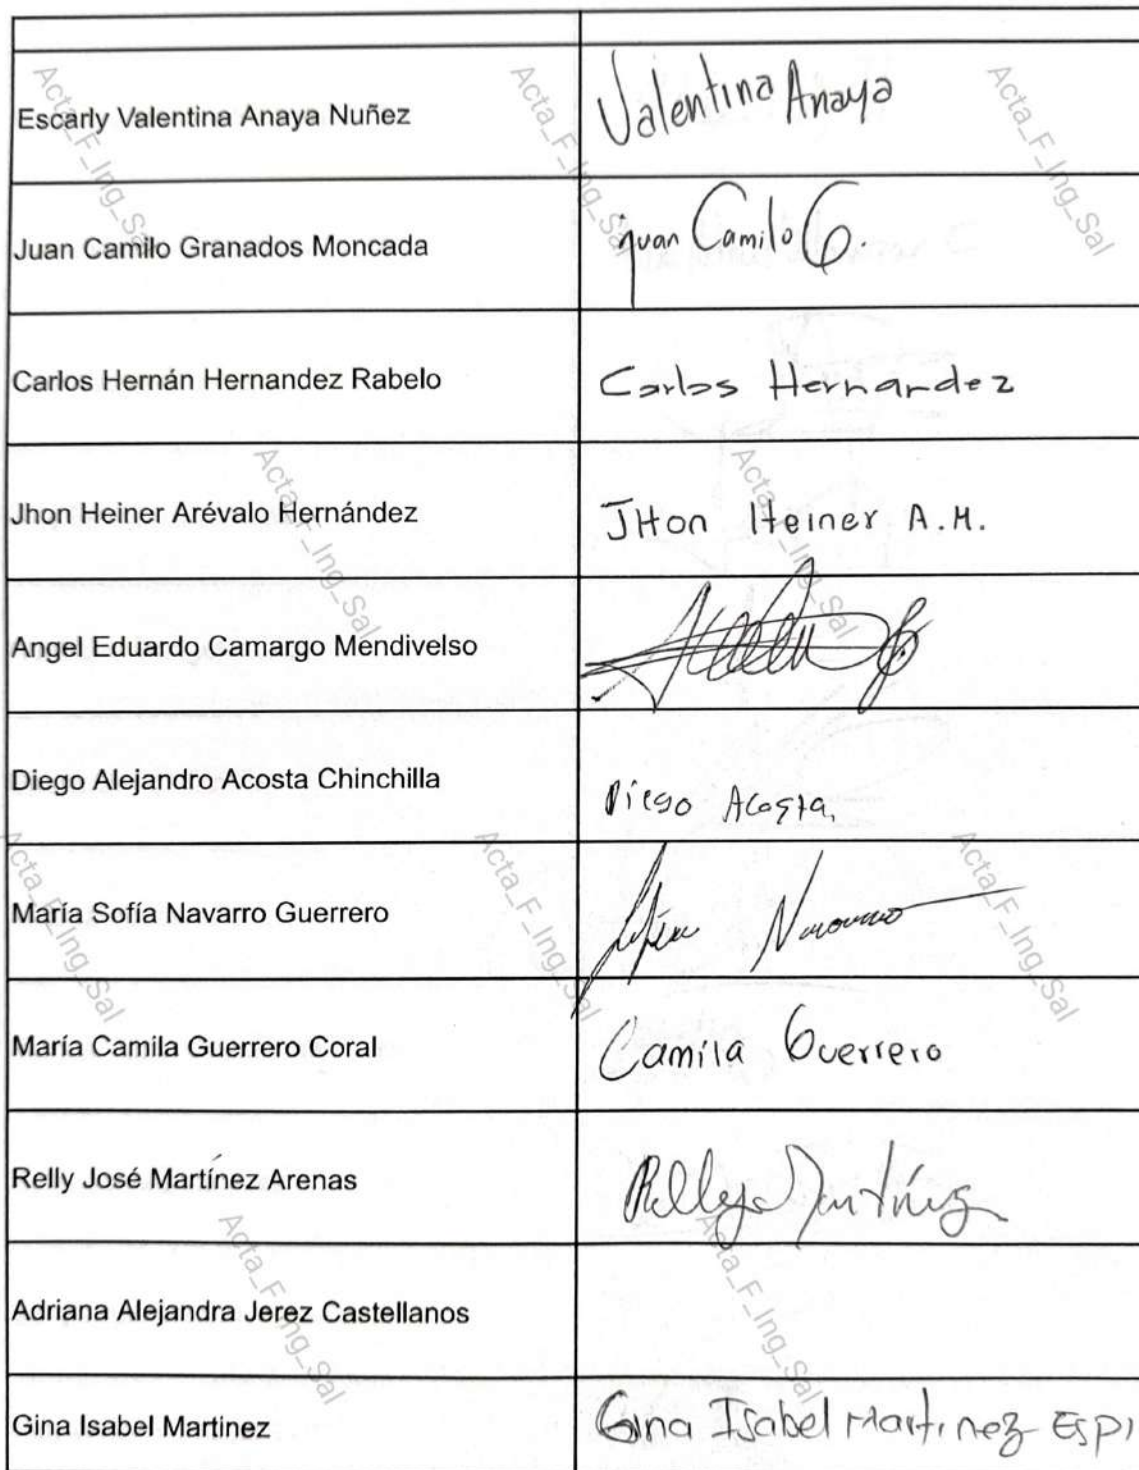 Escarly Valentina Anaya Nuñez Valentina Anaya
Juan Camilo Granados Moncada juan Camilo G.
Carlos Hernán Hernandez Rabelo Carlos Hernandez
Jhon Heiner Arévalo Hernández JHon Heiner A.H.
Angel Eduardo Camargo Mendivelso
Diego Alejandro Acosta Chinchilla Diego Acosta.
María Sofía Navarro Guerrero Sofía Navarro
María Camila Guerrero Coral Camila Guerrero
Relly José Martínez Arenas Relly Martínez
Adriana Alejandra Jerez Castellanos
Gina Isabel Martinez Gina Isabel Martinez Espi
Acta_F_Ing_Sal
Acta_F_Ing_Sal
Acta_F_Ing_Sal
Acta_F_Ing_Sal
Acta_F_Ing_Sal
Acta_F_Ing_Sal
Acta_F_Ing_Sal
Acta_F_Ing_Sal
Acta_F_Ing_Sal
Acta_F_Ing_Sal